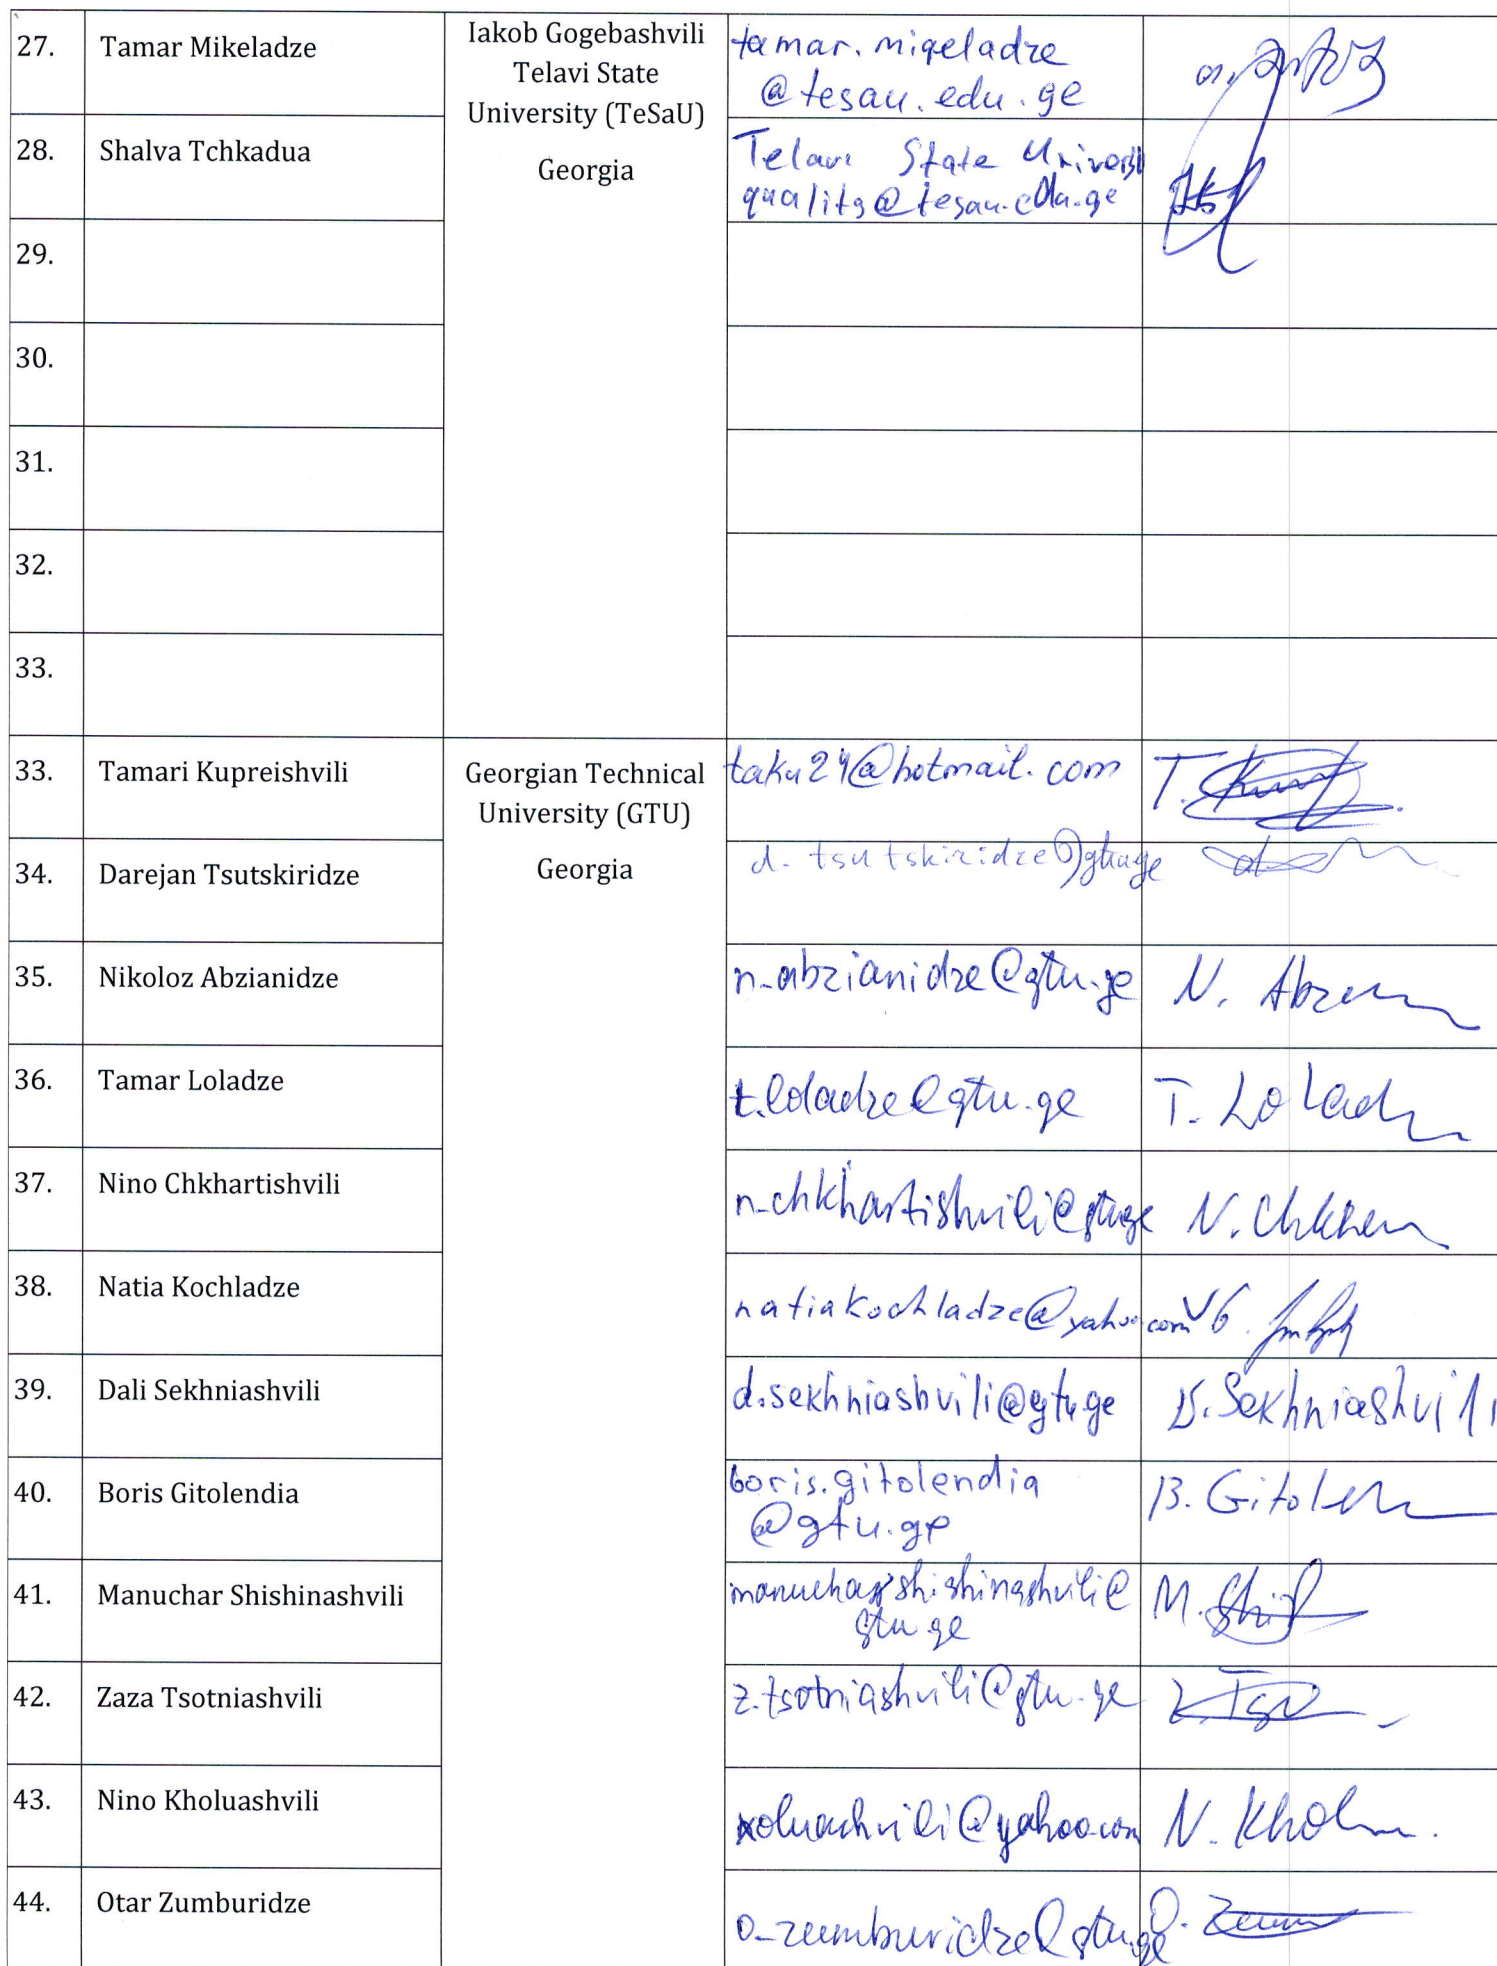 27. Tamar Mikeladze
Iakob Gogebashvili
Telavi State
University (TeSaU)
Georgia
tamar.miqeladze
@tesau.edu.ge
28. Shalva Tchkadua
Telavi State
quality@tesau.edu.ge
29.
30.
31.
32.
33.
33. Tamari Kupreishvili
Georgian Technical
University (GTU)
Georgia
taku24@hotmail.com
T.
34. Darejan Tsutskiridze
d-tsutskiridze@gtu.ge
35. Nikoloz Abzianidze
n-abzianidze@gtu.ge
N.
36. Tamar Loladze
t.loladze@gtu.ge
T. Loladz
37. Nino Chkhartishvili
n-chkhartishvili@gtu.ge
N.
38. Natia Kochladze
natiakochladze@yahoo.com
39. Dali Sekhniashvili
d.sekhniashvili@gtu.ge
D. Sekhniashvili
40. Boris Gitolendia
boris.gitolendia
@gtu.ge
B. Gitolen
41. Manuchar Shishinashvili
manucharshishinashvili@
gtu.ge
M.
42. Zaza Tsotniashvili
z.tsotniashvili@gtu.ge
43. Nino Kholuashvili
xoluashvili@yahoo.com
N. Khol
44. Otar Zumburidze
o-zumburidze@gtu.ge
O.